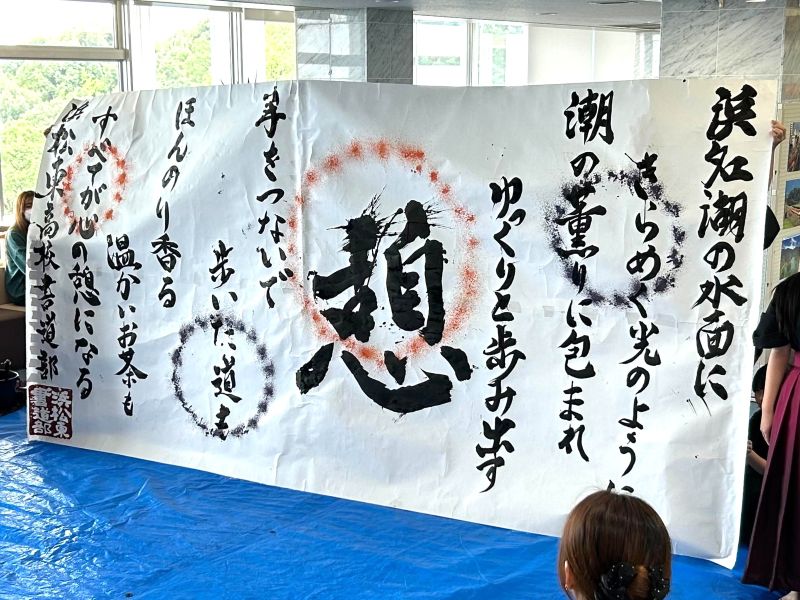 浜名湖の水面に
きらめく光のように
潮の薫りに包まれ
ゆっくりと歩み出す
憩
手をつないで
歩いた道も
ほんのり香る
温かいお茶も
すべてが心の憩になる
浜松東高校書道部
浜松東
書道部